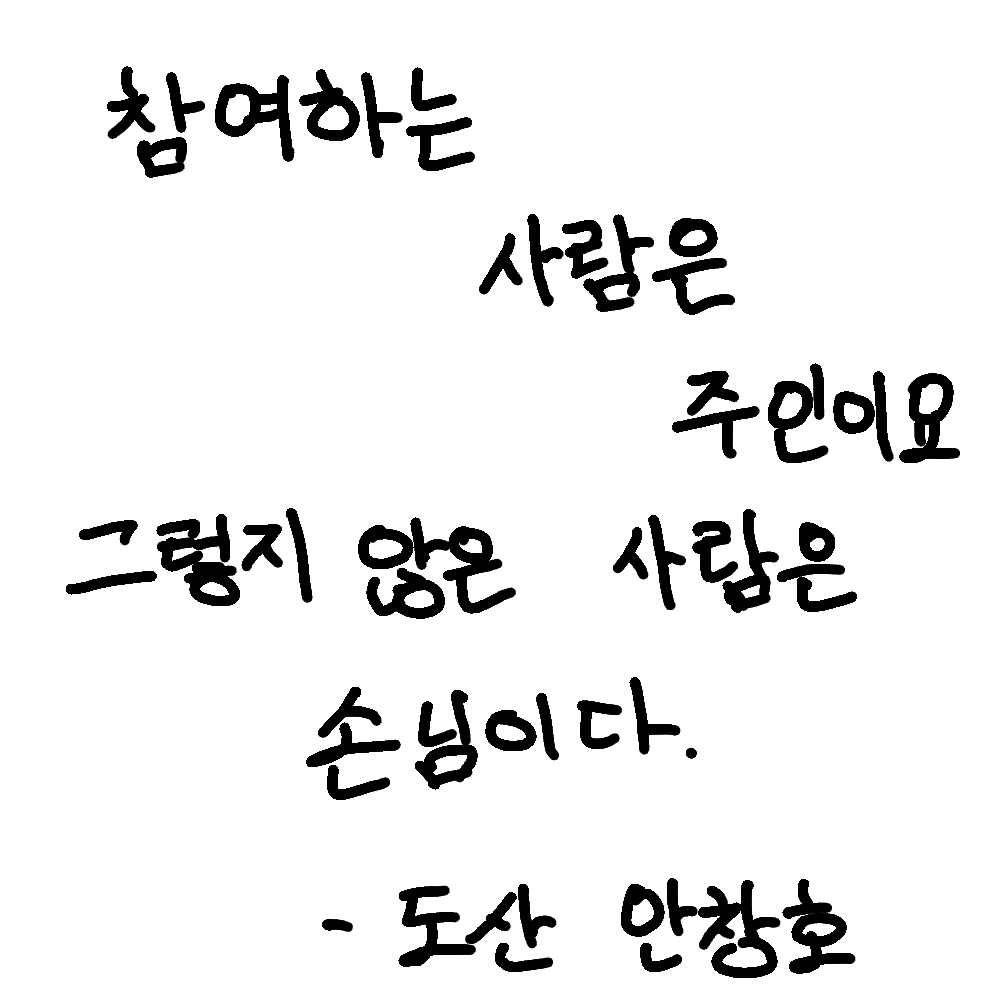 참여하는
사람은
주인이요
그렇지 않은 사람은
손님이다.
- 도산 안창호